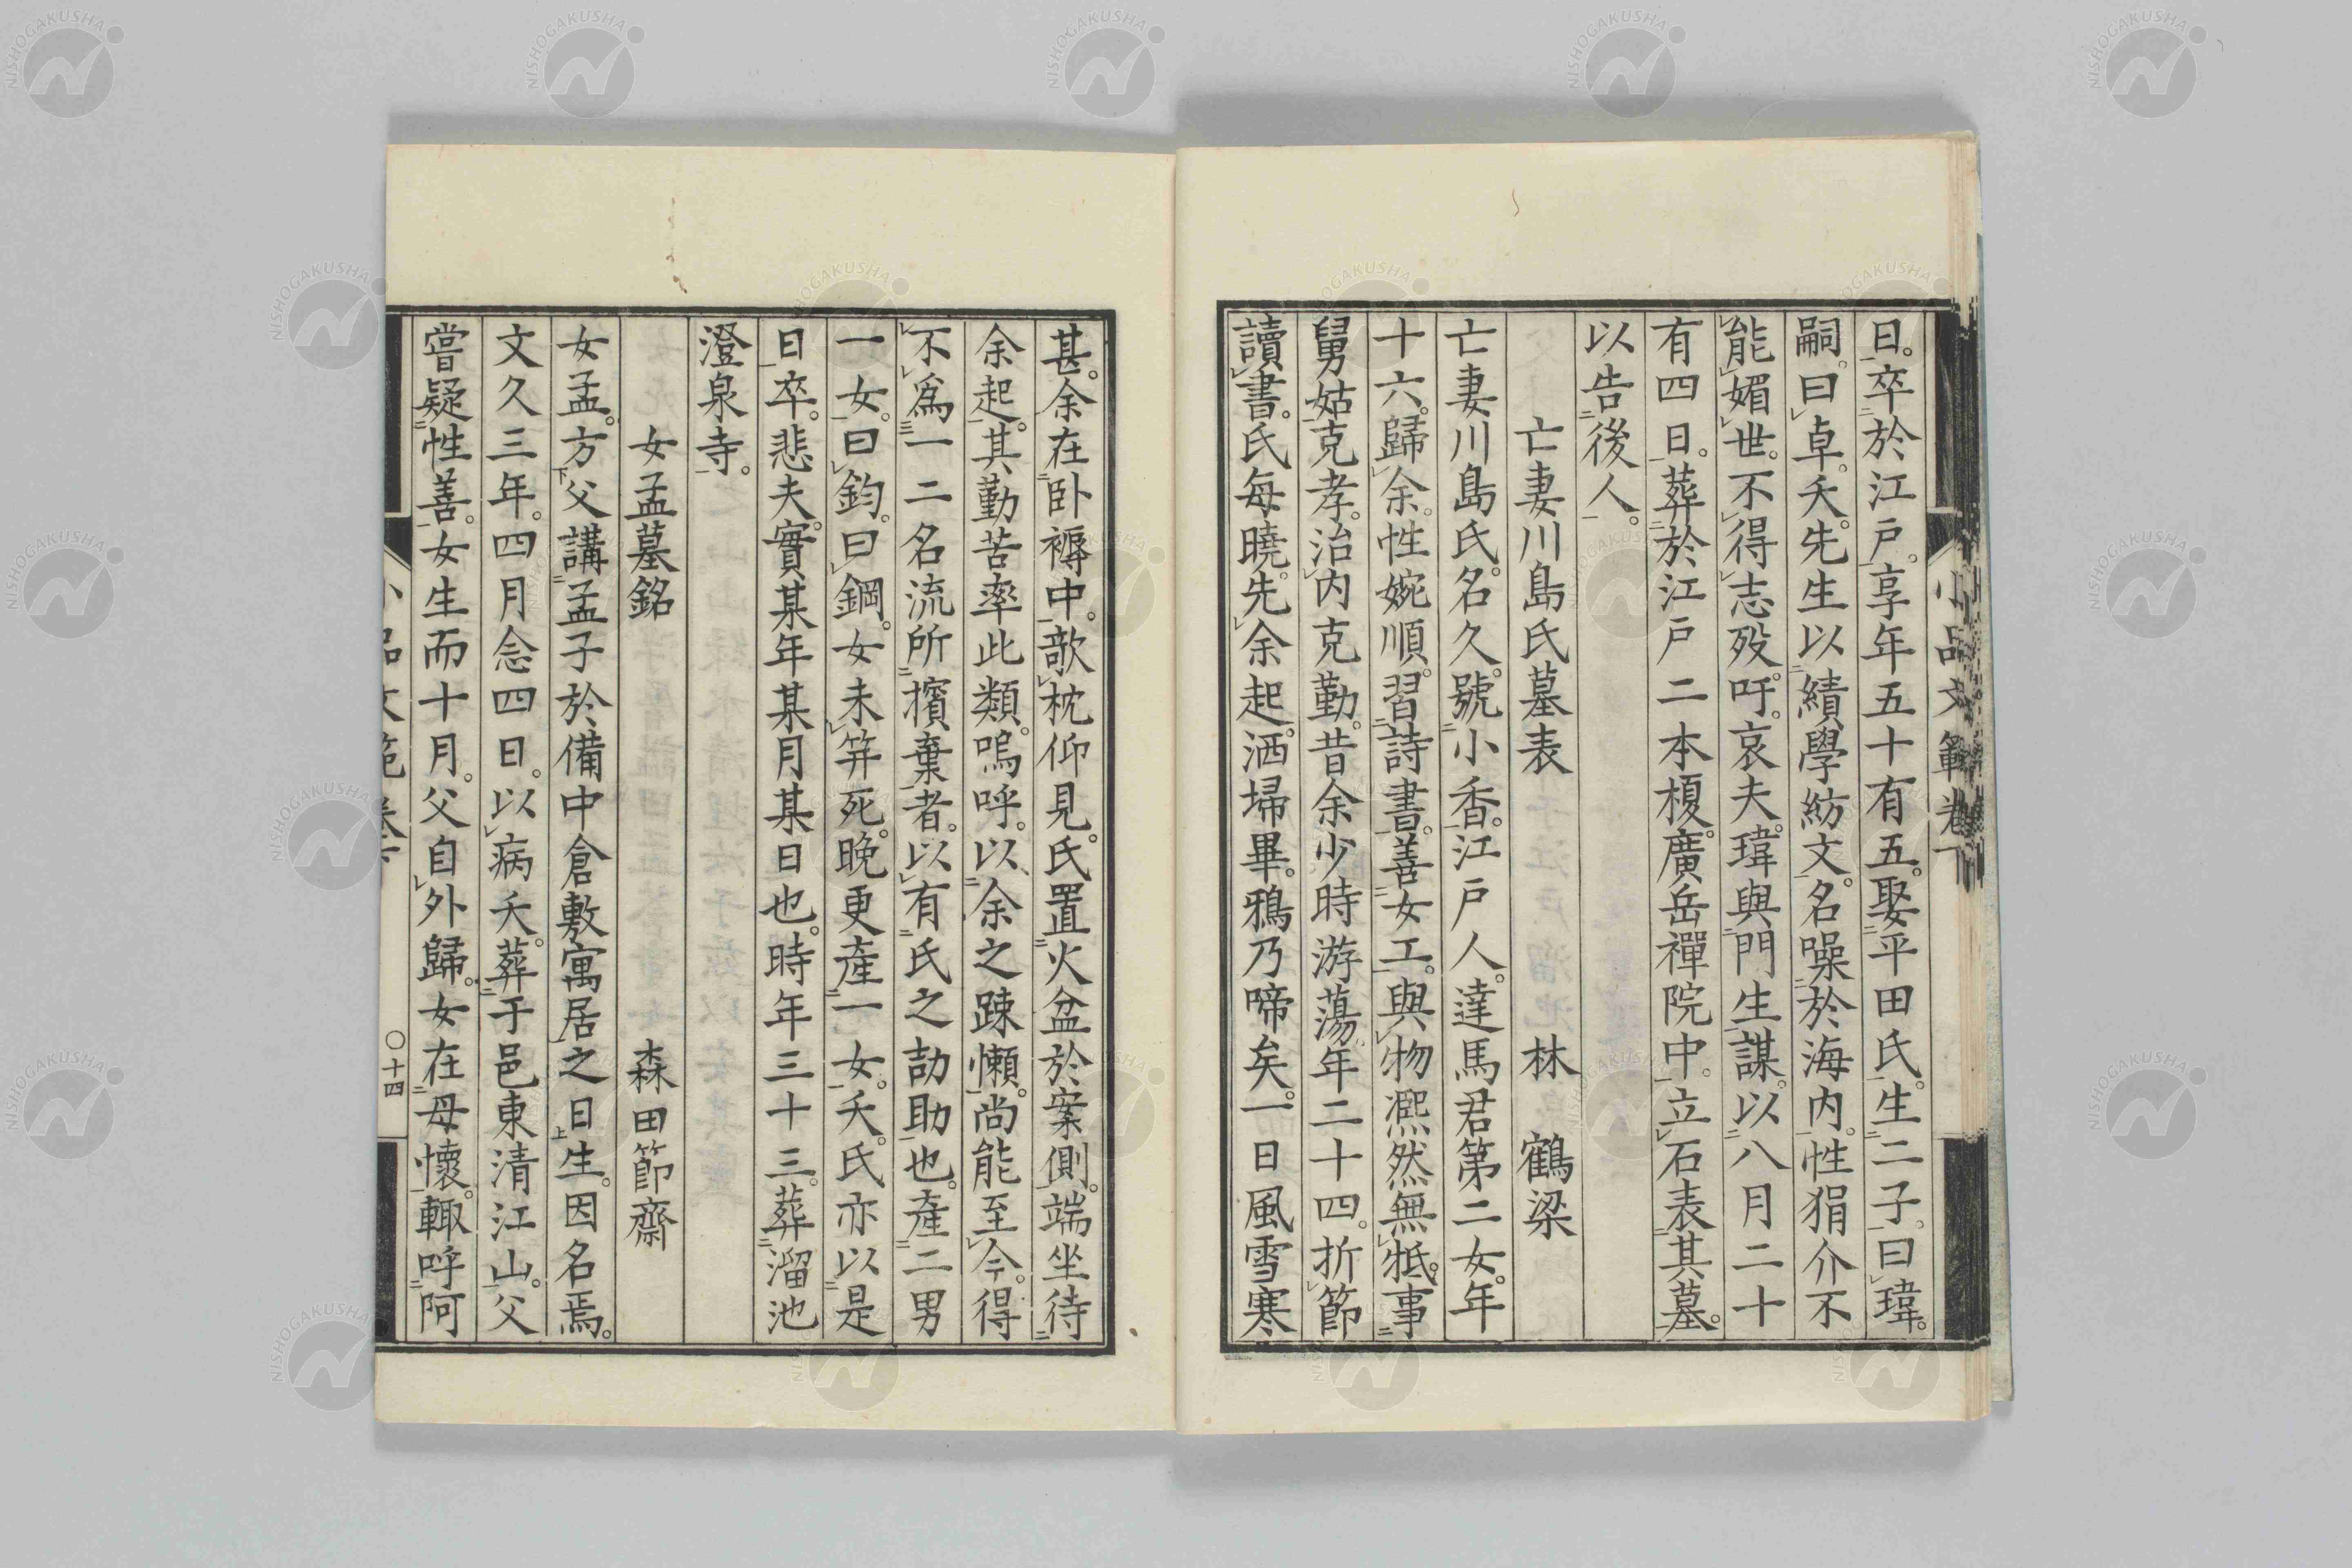 日。卒於江戸。享年五十有五。娶平田氏。生二子。曰瑋。
嗣。曰卓。夭。先生以績學紡文。名噪於海内。性狷介不
能媚世。不得志歿。吁。哀夫。瑋與門生謀。以八月二十
有四日。葬於江戸二本榎。廣岳禪院中。立石表其墓。
以告後人。
亡妻川島氏墓表 林 鶴梁
亡妻川島氏。名久。號小香。江戸人。達馬君第二女。年
十六。歸余。性婉順。習詩書。善女工。與物凞然無牴。事
舅姑克孝。治内克勤。昔余少時游蕩。年二十四。折節
讀書。氏毎曉。先余起。洒埽畢。鴉乃啼矣。一日風雪寒
甚。余在卧褥中。欹枕仰見。氏置火盆於案側。端坐待
余起。其勤苦率此類。嗚呼。以余之踈懶。尚能至今。得
不爲一二名流所擯棄者。以有氏之劼助也。產二男
一女。曰鈞。曰鋼。女未笄死。晩更產一女。夭。氏亦以是
日卒。悲夫。實某年某月某日也。時年三十三。葬溜池
澄泉寺。
女孟墓銘 森田節齋
女孟。方父講孟子於備中倉敷寓居之日生。因名焉。
文久三年。四月念四日。以病夭。葬于邑東清江山。父
嘗疑性善。女生而十月。父自外歸。女在母懷。輙呼阿
小品文範 卷下 〇十四
小品文範卷下
NISHOGAKUSHA